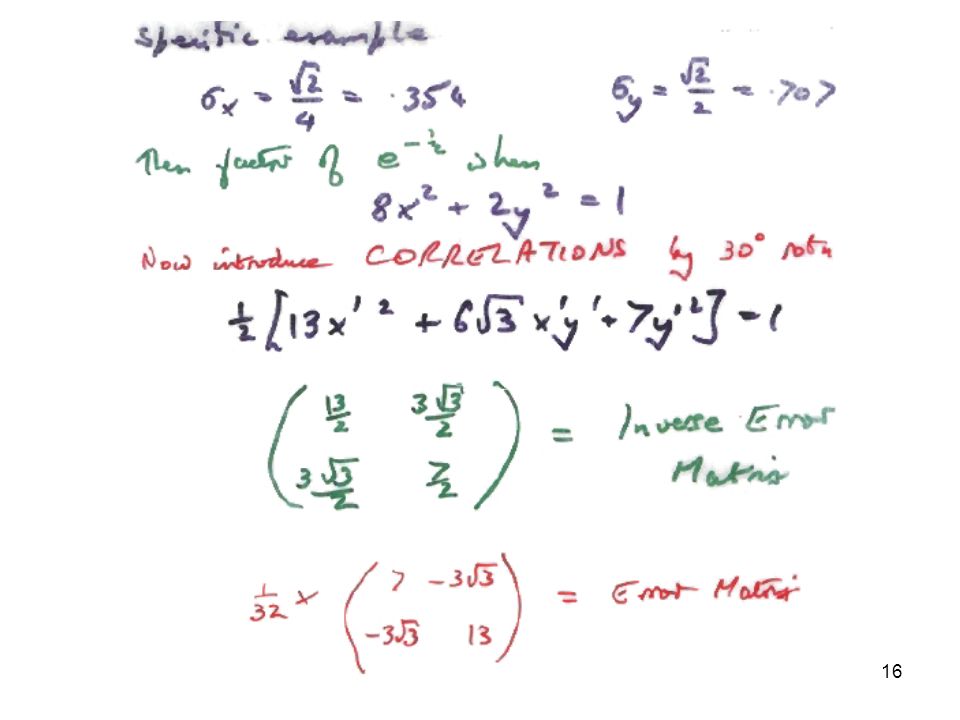 Specific example
σx = √2/4 = .354 σy = √2/2 = .707
Then factor of e^-½ when
8x² + 2y² = 1
Now introduce CORRELATIONS by 30° rotn
½[13x'² + 6√3 x'y' + 7y'²] = 1
( 13/2 3√3/2
3√3/2 7/2 ) = Inverse Error Matrix
1/32 × ( 7 -3√3
-3√3 13 ) = Error Matrix
16